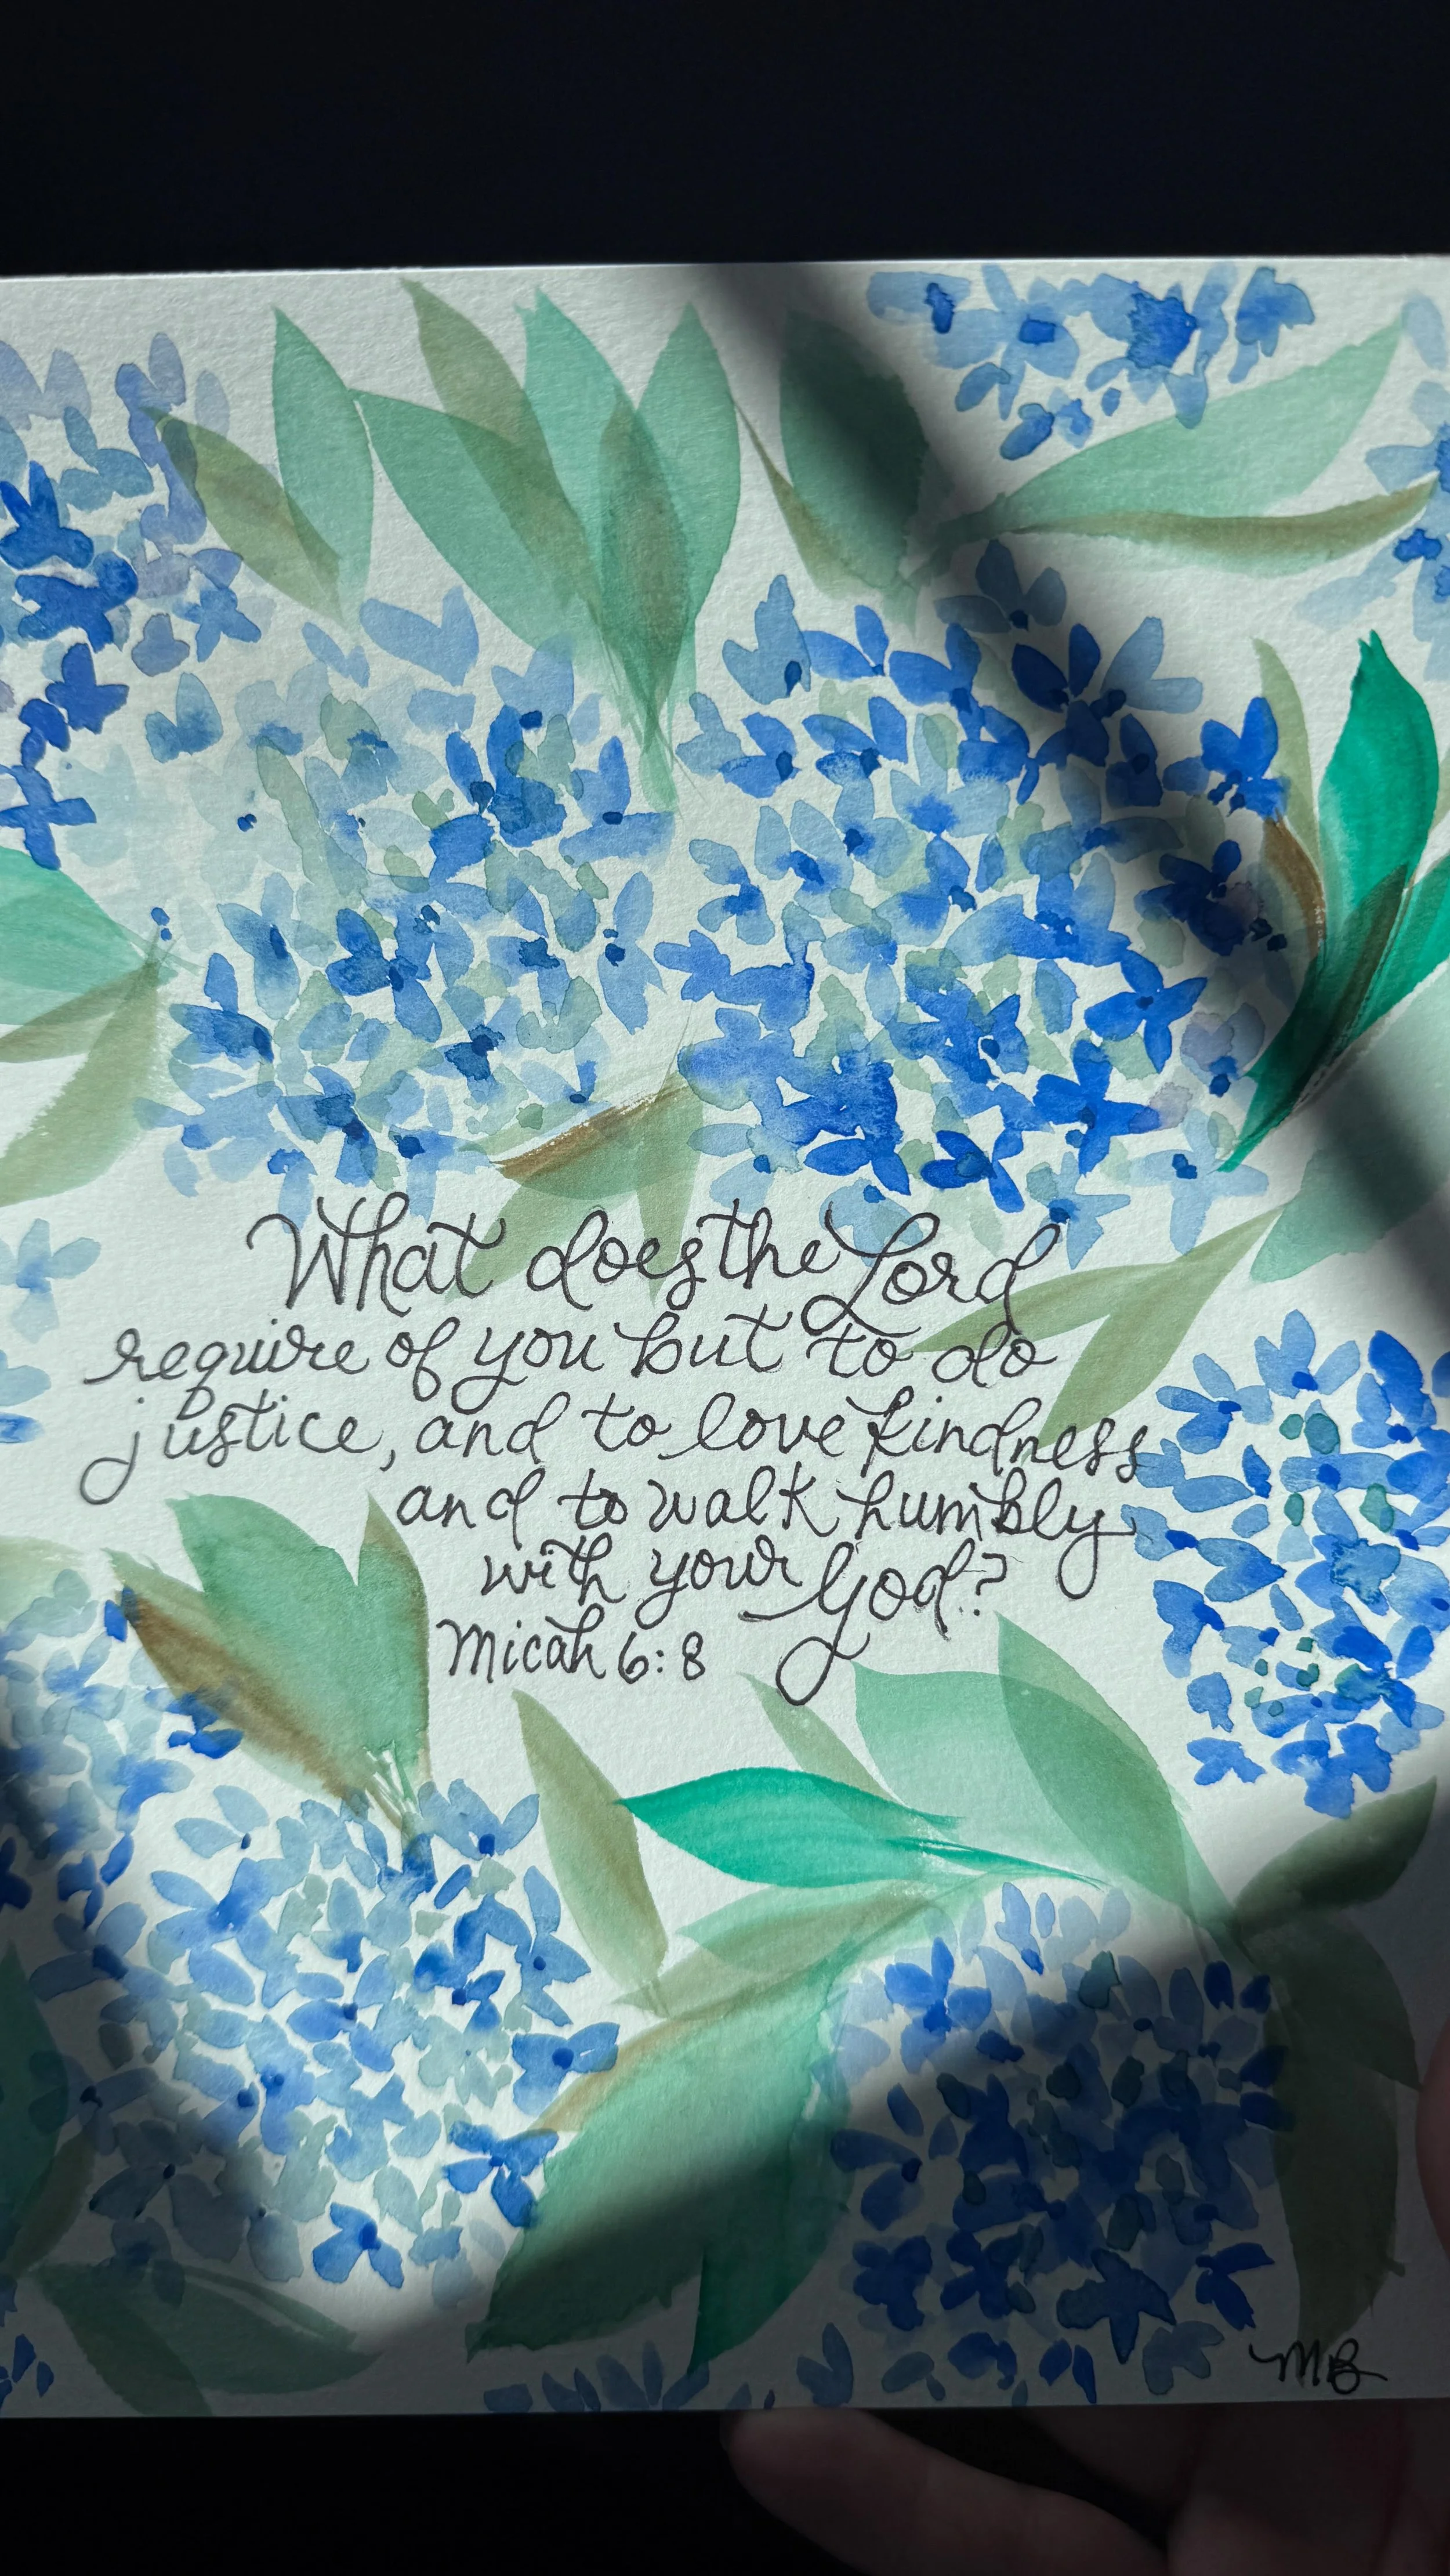 What does the Lord
require of you but to do
justice, and to love kindness
and to walk humbly
with your God?
Micah 6:8
MB